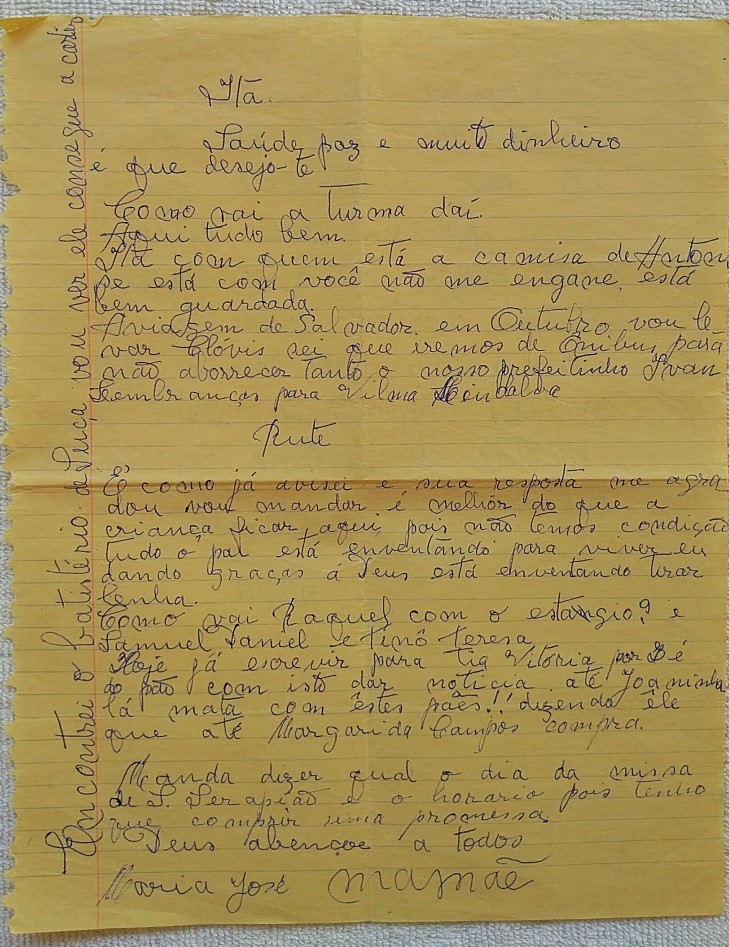 Itá.
Saúde, paz e muito dinheiro
é que desejo-te
Como vai a turma daí.
Aqui tudo bem.
Itá com quem está a camisa de Anton
se está com você não me engane, está
bem guardada.
A viagem de Salvador. em Outubro, vou le
var Clóvis sei que iremos de Ônibus, para
não aborrecer tanto o nosso prefeitinho Ivan
Lembranças para Vilma
Rute
É como já avisei e sua resposta me agra
dou vou mandar é melhor do que a
criança ficar aqui, pois não temos condição
tudo o pai está enventando para viver eu
dando graças á Deus está enventando tirar
lenha.
Como vai Raquel com o estangio? e
Samuel Daniel e tinô teresa
Hoje já escrevir para tia Vitória por Zé
do pão com isto dar noticia. até Joaninha
lá mata com êstes pães!! dizendo êle
que até Margarida Campos compra.
Manda dizer qual o dia da missa
de S. Serapião e o horario pois tenho
que comprir uma promessa.
Deus abençoe a todos
Maria José mamãe
Encontrei o batistério de vou ver ele consegue a